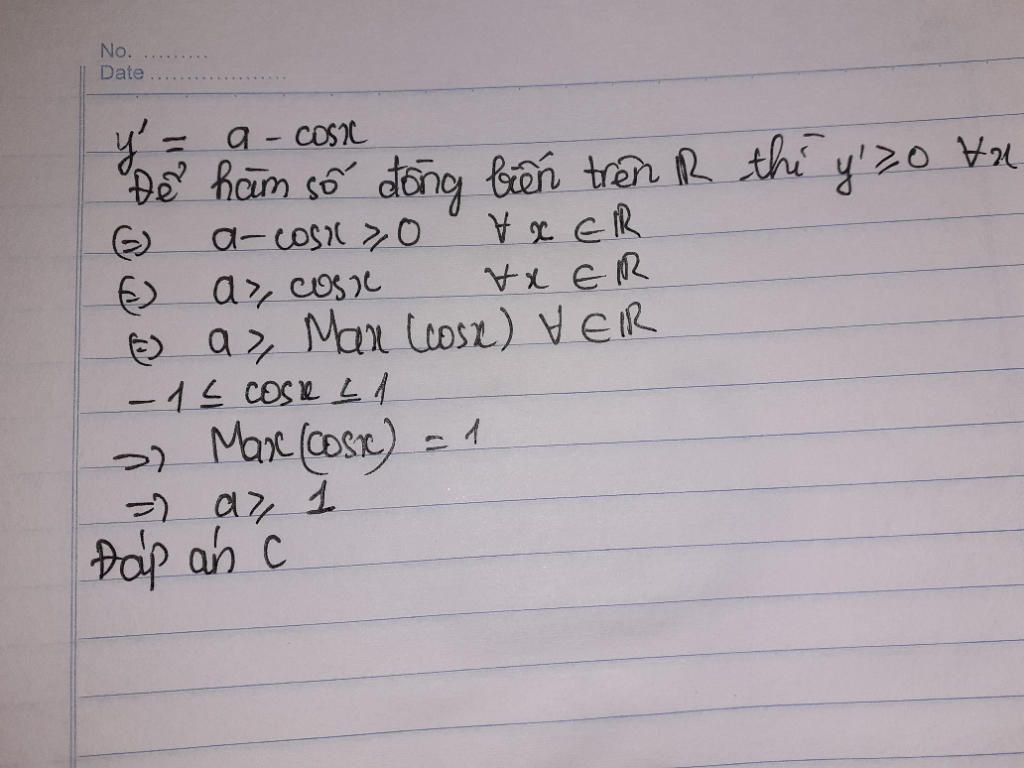 No. .........
Date ...................
y' = a - cosx
Để hàm số đồng biến trên ℝ thì y' ≥ 0 ∀x
⇔ a - cosx ≥ 0 ∀ x ∈ ℝ
⇔ a ≥ cosx ∀ x ∈ ℝ
⇔ a ≥ Max (cosx) ∀ ∈ ℝ
- 1 ≤ cosx ≤ 1
⇒ Max (cosx) = 1
⇒ a ≥ 1
Đáp án C